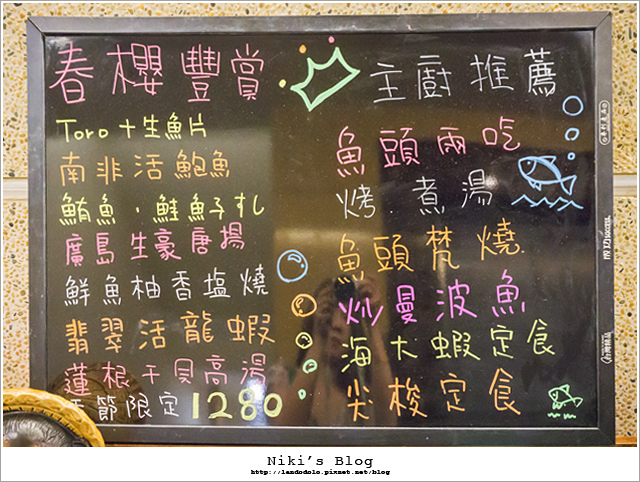 春櫻豐賞
Toro+生魚片
南非活鮑魚
鮪魚、鮭魚子札
廣島生豪唐揚
鮮魚柚香塩燒
翡翠活龍蝦
蓮根干貝高湯
節限定1280
主廚推薦
魚頭兩吃
烤.煮湯
魚頭梵燒
炒曼波魚
海大蝦定食
尖梭定食
Niki's Blog
http://landodolo.pixnet.net/blog